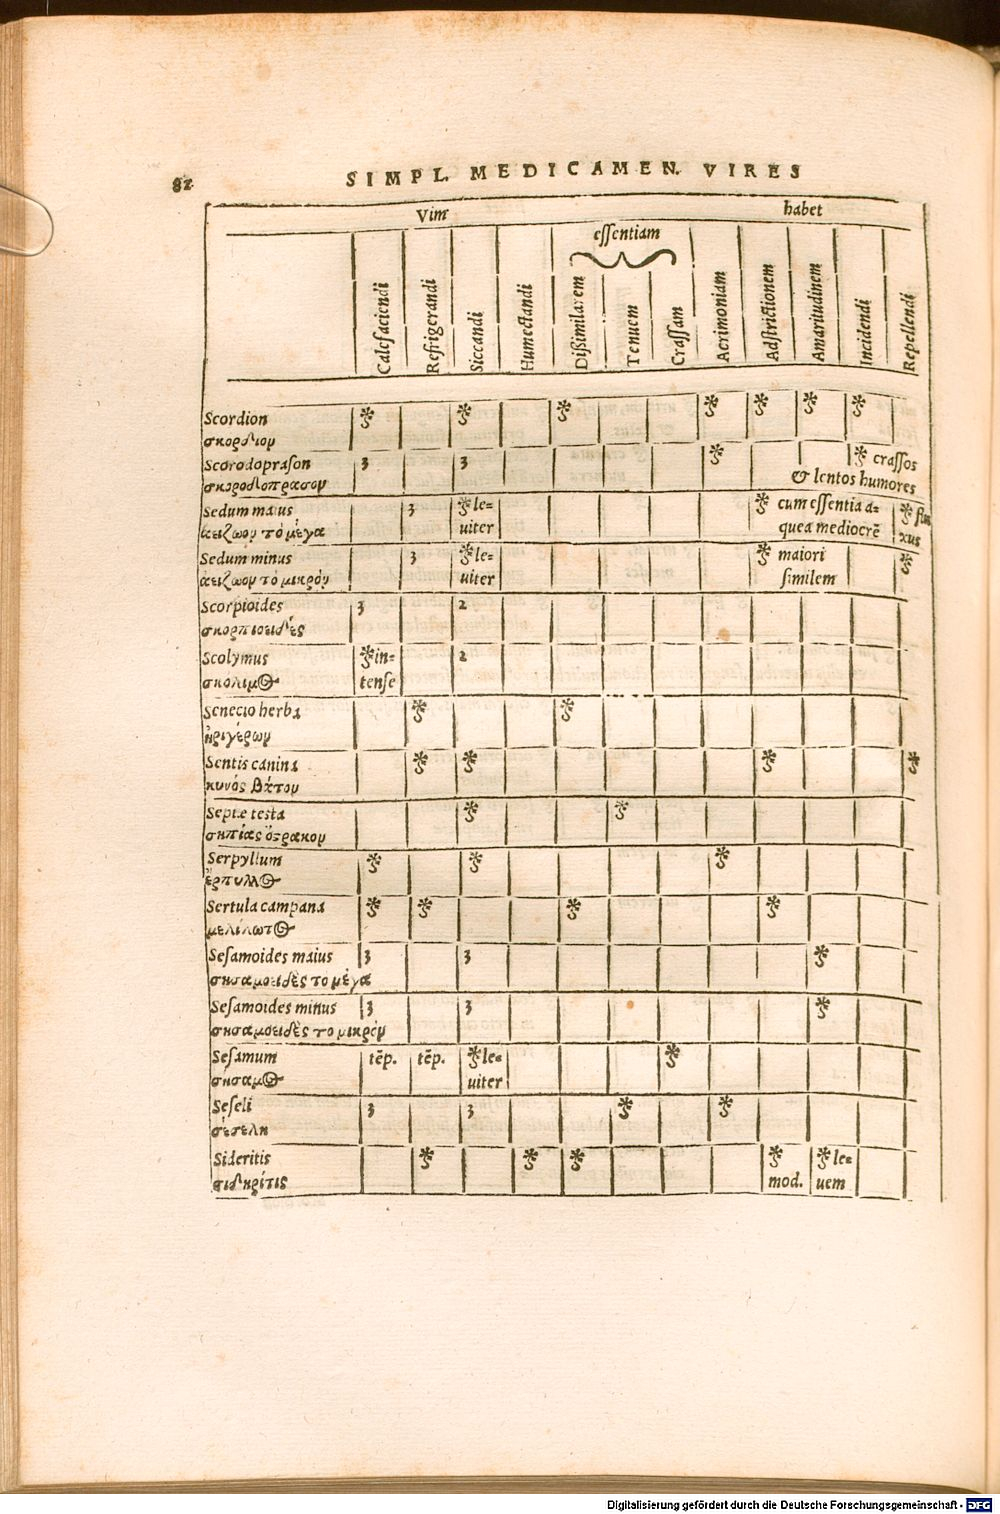 82 SIMPL. MEDICAMEN. VIRES
Vim habet
essentiam
Calefaciendi Refrigerandi Siccandi Humectandi Dißimilarem Tenuem Crassam Acrimoniam Adstrictionem Amaritudinem Incidendi Repellendi
Scordion * * * * * * *
σκορδιον
Scorodoprason 3 3 * * crassos
σκοροδοπρασον & lentos humores
Sedum maius 3 * le= * cum essentia a= * flu
ἀειζωον τὸ μέγα uiter quea mediocrē xus
Sedum minus 3 * le= * maiori *
ἀειζωον τὸ μικρόν uiter similem
Scorpioides 3 2
σκορπιοειδές
Scolymus * in= 2
σκολιμος tense
Senecio herba * *
ἠριγέρων
Sentis canina * * * *
κυνός βάτου
Sepiæ testa * *
σηπίας ὄστρακον
Serpyllum * * *
ἑρπυλλος
Sertula campana * * * *
μελιλωτος
Sesamoides maius 3 3 *
σησαμοειδὲς το μέγα
Sesamoides minus 3 3 *
σησαμοειδὲς το μικρόν
Sesamum tēp. tēp. * le= *
σησαμος uiter
Seseli 3 3 * *
σέσελι
Sideritis * * * * * le=
σιδηρίτις mod. uem
Digitalisierung gefördert durch die Deutsche Forschungsgemeinschaft - DFG